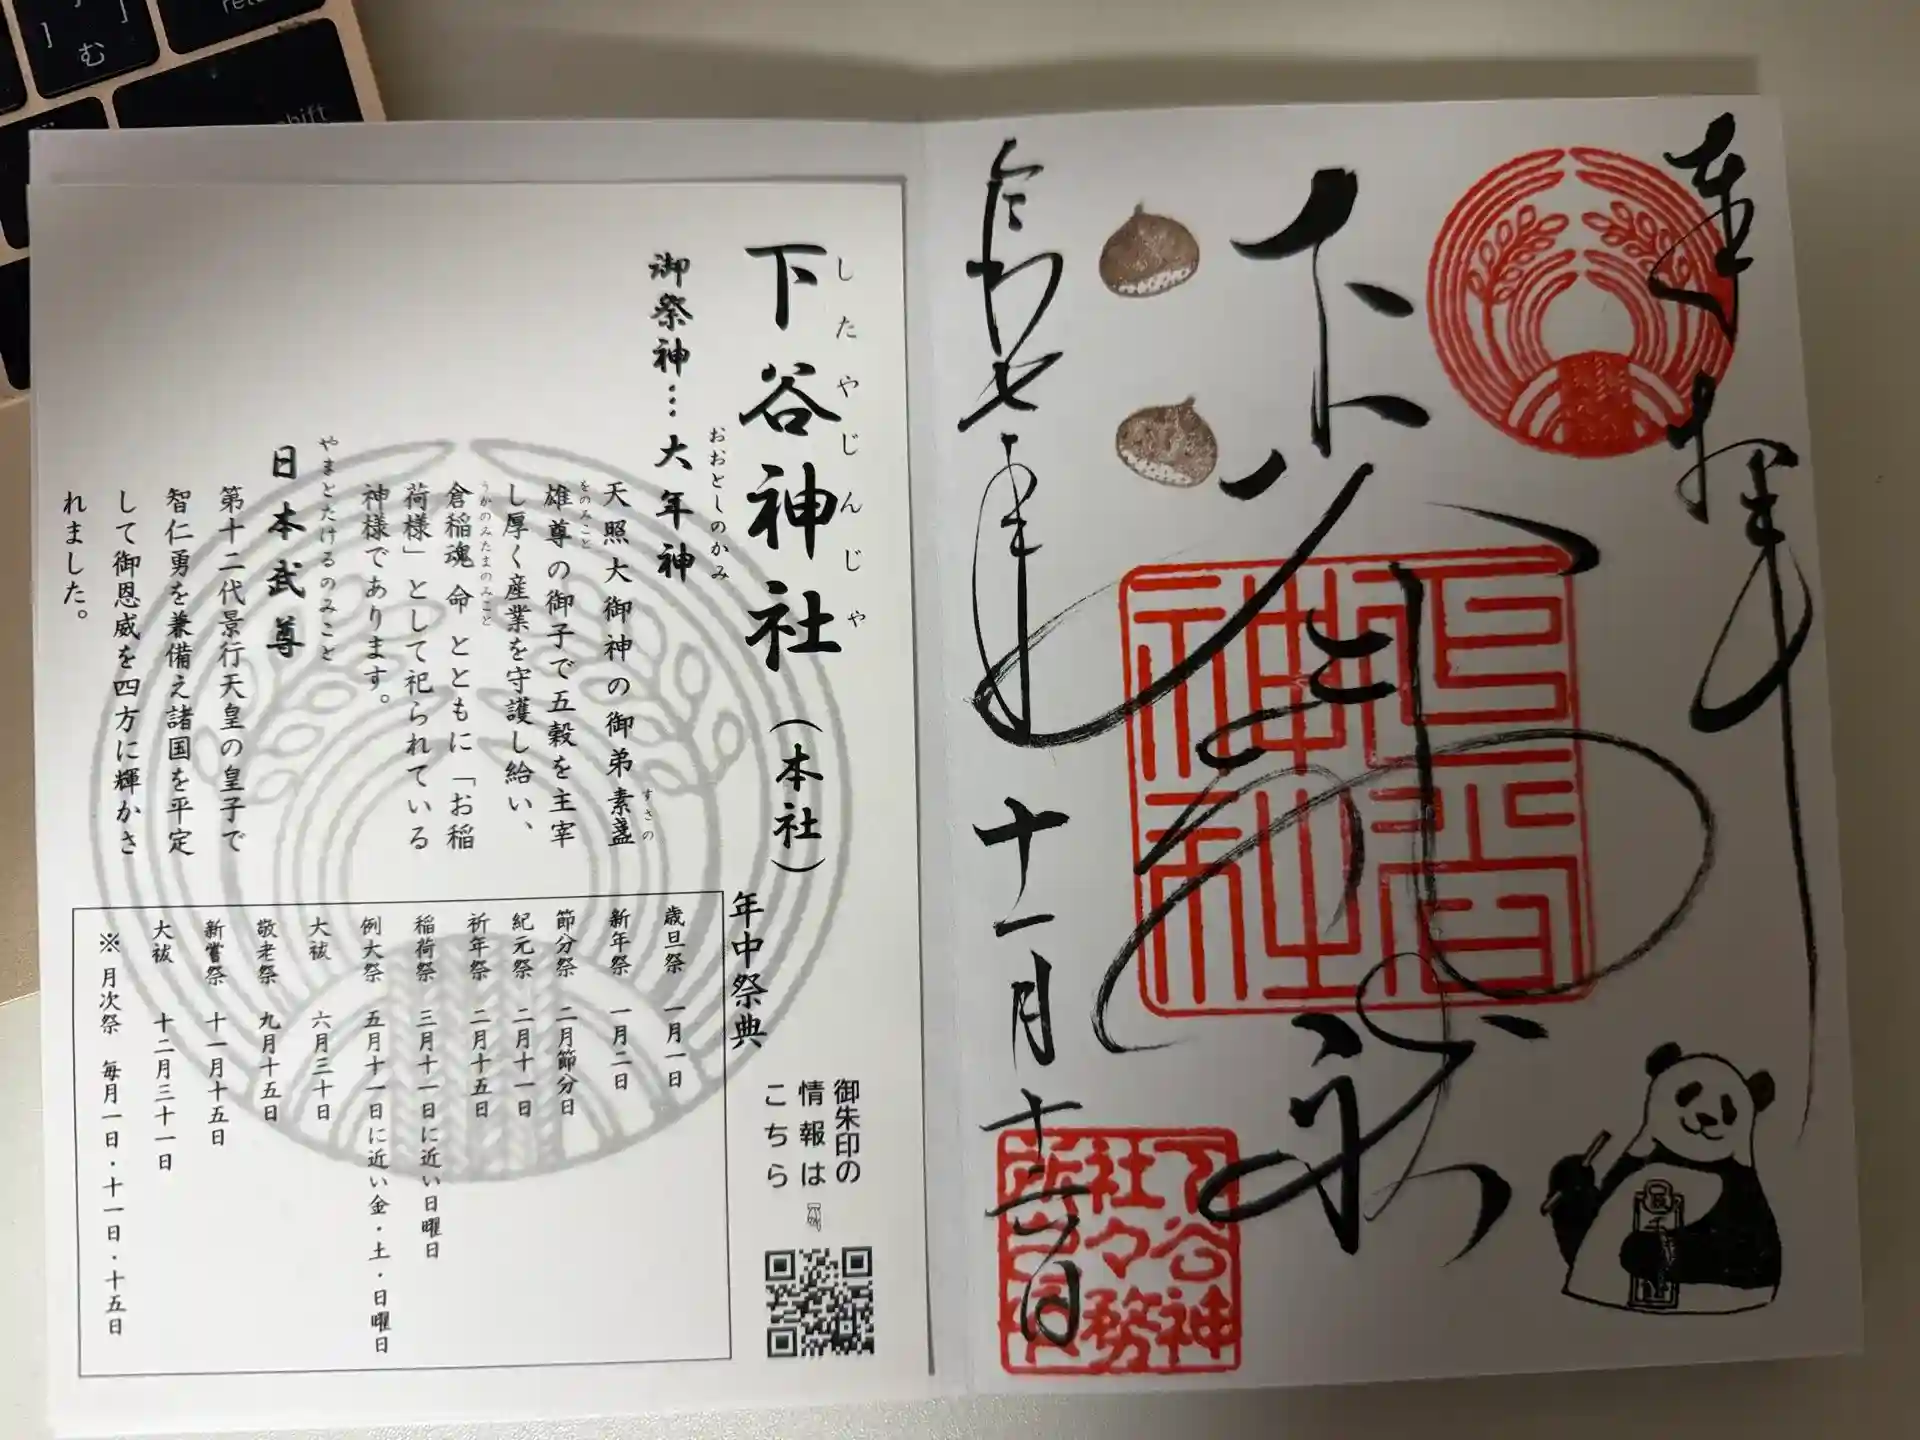 奉
拝
下谷神社
下谷神社
令和七年十一月十二日
下谷神社々務所之印
したやじんじゃ
下谷神社(本社)
おおとしのかみ
御祭神…大年神
すさの
天照大御神の御弟素盞
をのみこと
雄尊の御子で五穀を主宰
し厚く産業を守護し給い、
うかのみたまのみこと
倉稲魂命とともに「お稲
荷様」として祀られている
神様であります。
やまとたけるのみこと
日本武尊
第十二代景行天皇の皇子で
智仁勇を兼備え諸国を平定
して御恩威を四方に輝かさ
れました。
年中祭典
歳旦祭 一月一日
新年祭 一月二日
節分祭 二月節分日
紀元祭 二月十一日
祈年祭 二月十五日
稲荷祭 三月十一日に近い日曜日
例大祭 五月十一日に近い金・土・日曜日
大祓 六月三十日
敬老祭 九月十五日
新嘗祭 十一月十五日
大祓 十二月三十一日
※月次祭 毎月一日・十一日・十五日
御朱印の
情報は
こちら
む
]
shift